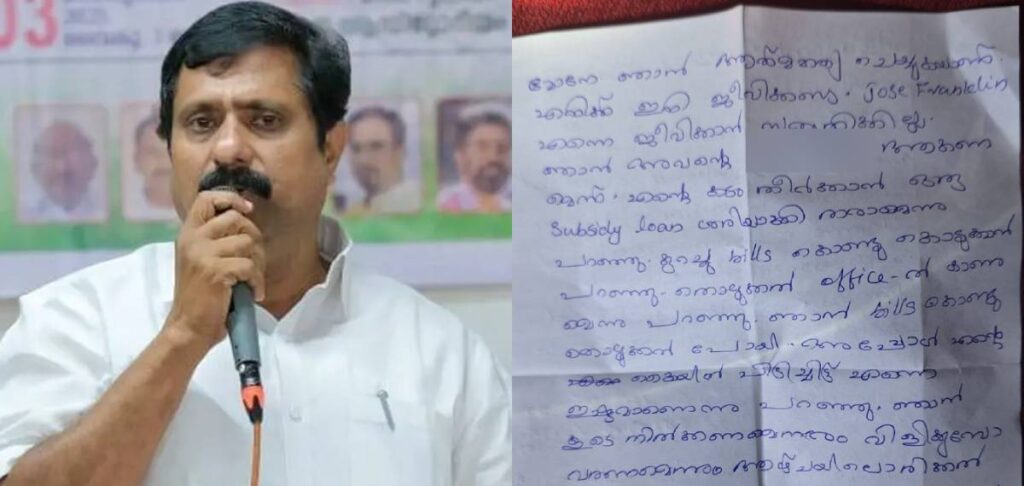 03
മോനേ ഞാൻ ആത്മഹത്യ ചെയ്യുകയാണ്.
എനിക്ക് ഇനി ജീവിക്കണ്ട. Jose Franklin
എന്നെ ജീവിക്കാൻ സമ്മതിക്കില്ല.
ഞാൻ അവന്റെ
എന്റെ കടം തീർക്കാൻ ഒരു
Subsidy loan ശരിയാക്കി തരാമെന്നു
പറഞ്ഞു. കുറച്ചു bills കൊണ്ടു കൊടുക്കാൻ
പറഞ്ഞു. office-ൽ
എന്നു പറഞ്ഞു. ഞാൻ bills കൊണ്ടു
കൊടുക്കാൻ പോയി. അപ്പോൾ എന്റെ
കൈയിൽ പിടിച്ചിട്ട് എന്നെ
ഇഷ്ടമാണെന്നു പറഞ്ഞു. ഞാൻ
കൂടെ നിൽക്കണമെന്നും വിളിക്കുമ്പോ
വരണമെന്നും